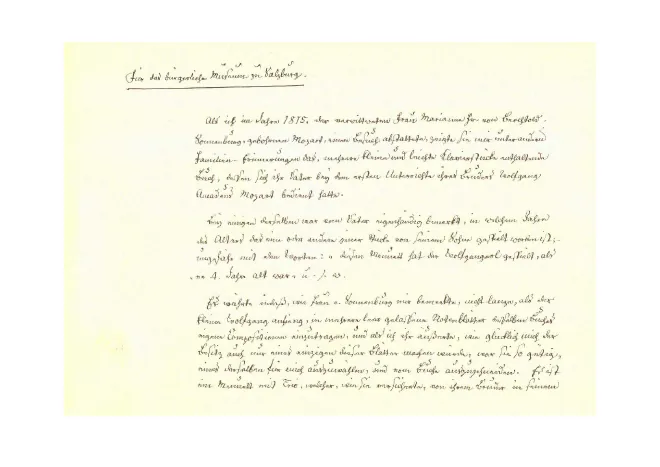 Für das bürgerliche Museum zu Salzburg.
Als ich im Jahre 1815, der verwittweten Frau Marianne Fr. von Berchtold-
Sonnenburg, gebohrnen Mozart, einen Besuch abstattete, zeigte sie mir unter andern
Familien-Erinnerungen das, mehrere kleine und leichte Clavierstücke enthaltende
Buch, dessen sich ihr Vater bey dem ersten Unterrichte ihres Bruders Wolfgang
Amadeus Mozart bedient hatte.
Bey einigen derselben war vom Vater eigenhändig bemerkt, in welchem Jahre
des Alters das eine oder andere dieser Stücke von seinem Sohne gespielt worden ist,
ungefähr mit den Worten: diesen Menuett hat der Wolfgangerl gespielt, als
er 4. Jahre alt war u. s. w.
Es währte indeß, wie Frau v. Sonnenburg mir bemerkte, nicht lange, als der
kleine Wolfgang anfing, in mehrere leer gelassene Notenblätter desselben Buches
eigene Compositionen einzutragen, und als ich ihr äußerte, wie glücklich mich der
Besitz auch nur eines einzigen dieser Blätter machen würde, war sie so gütig,
eines derselben für mich auszuwählen, und vom Buche auszuschneiden. Es ist
ein Menuett mit Trio, welcher, wie sie versicherte, von ihrem Bruder in seinem